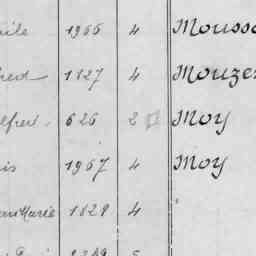 1966 4 Mousso
1827 4 Mouze
lfred 626 2 Moy
is 1967 4 Moy
Marie 1829 4